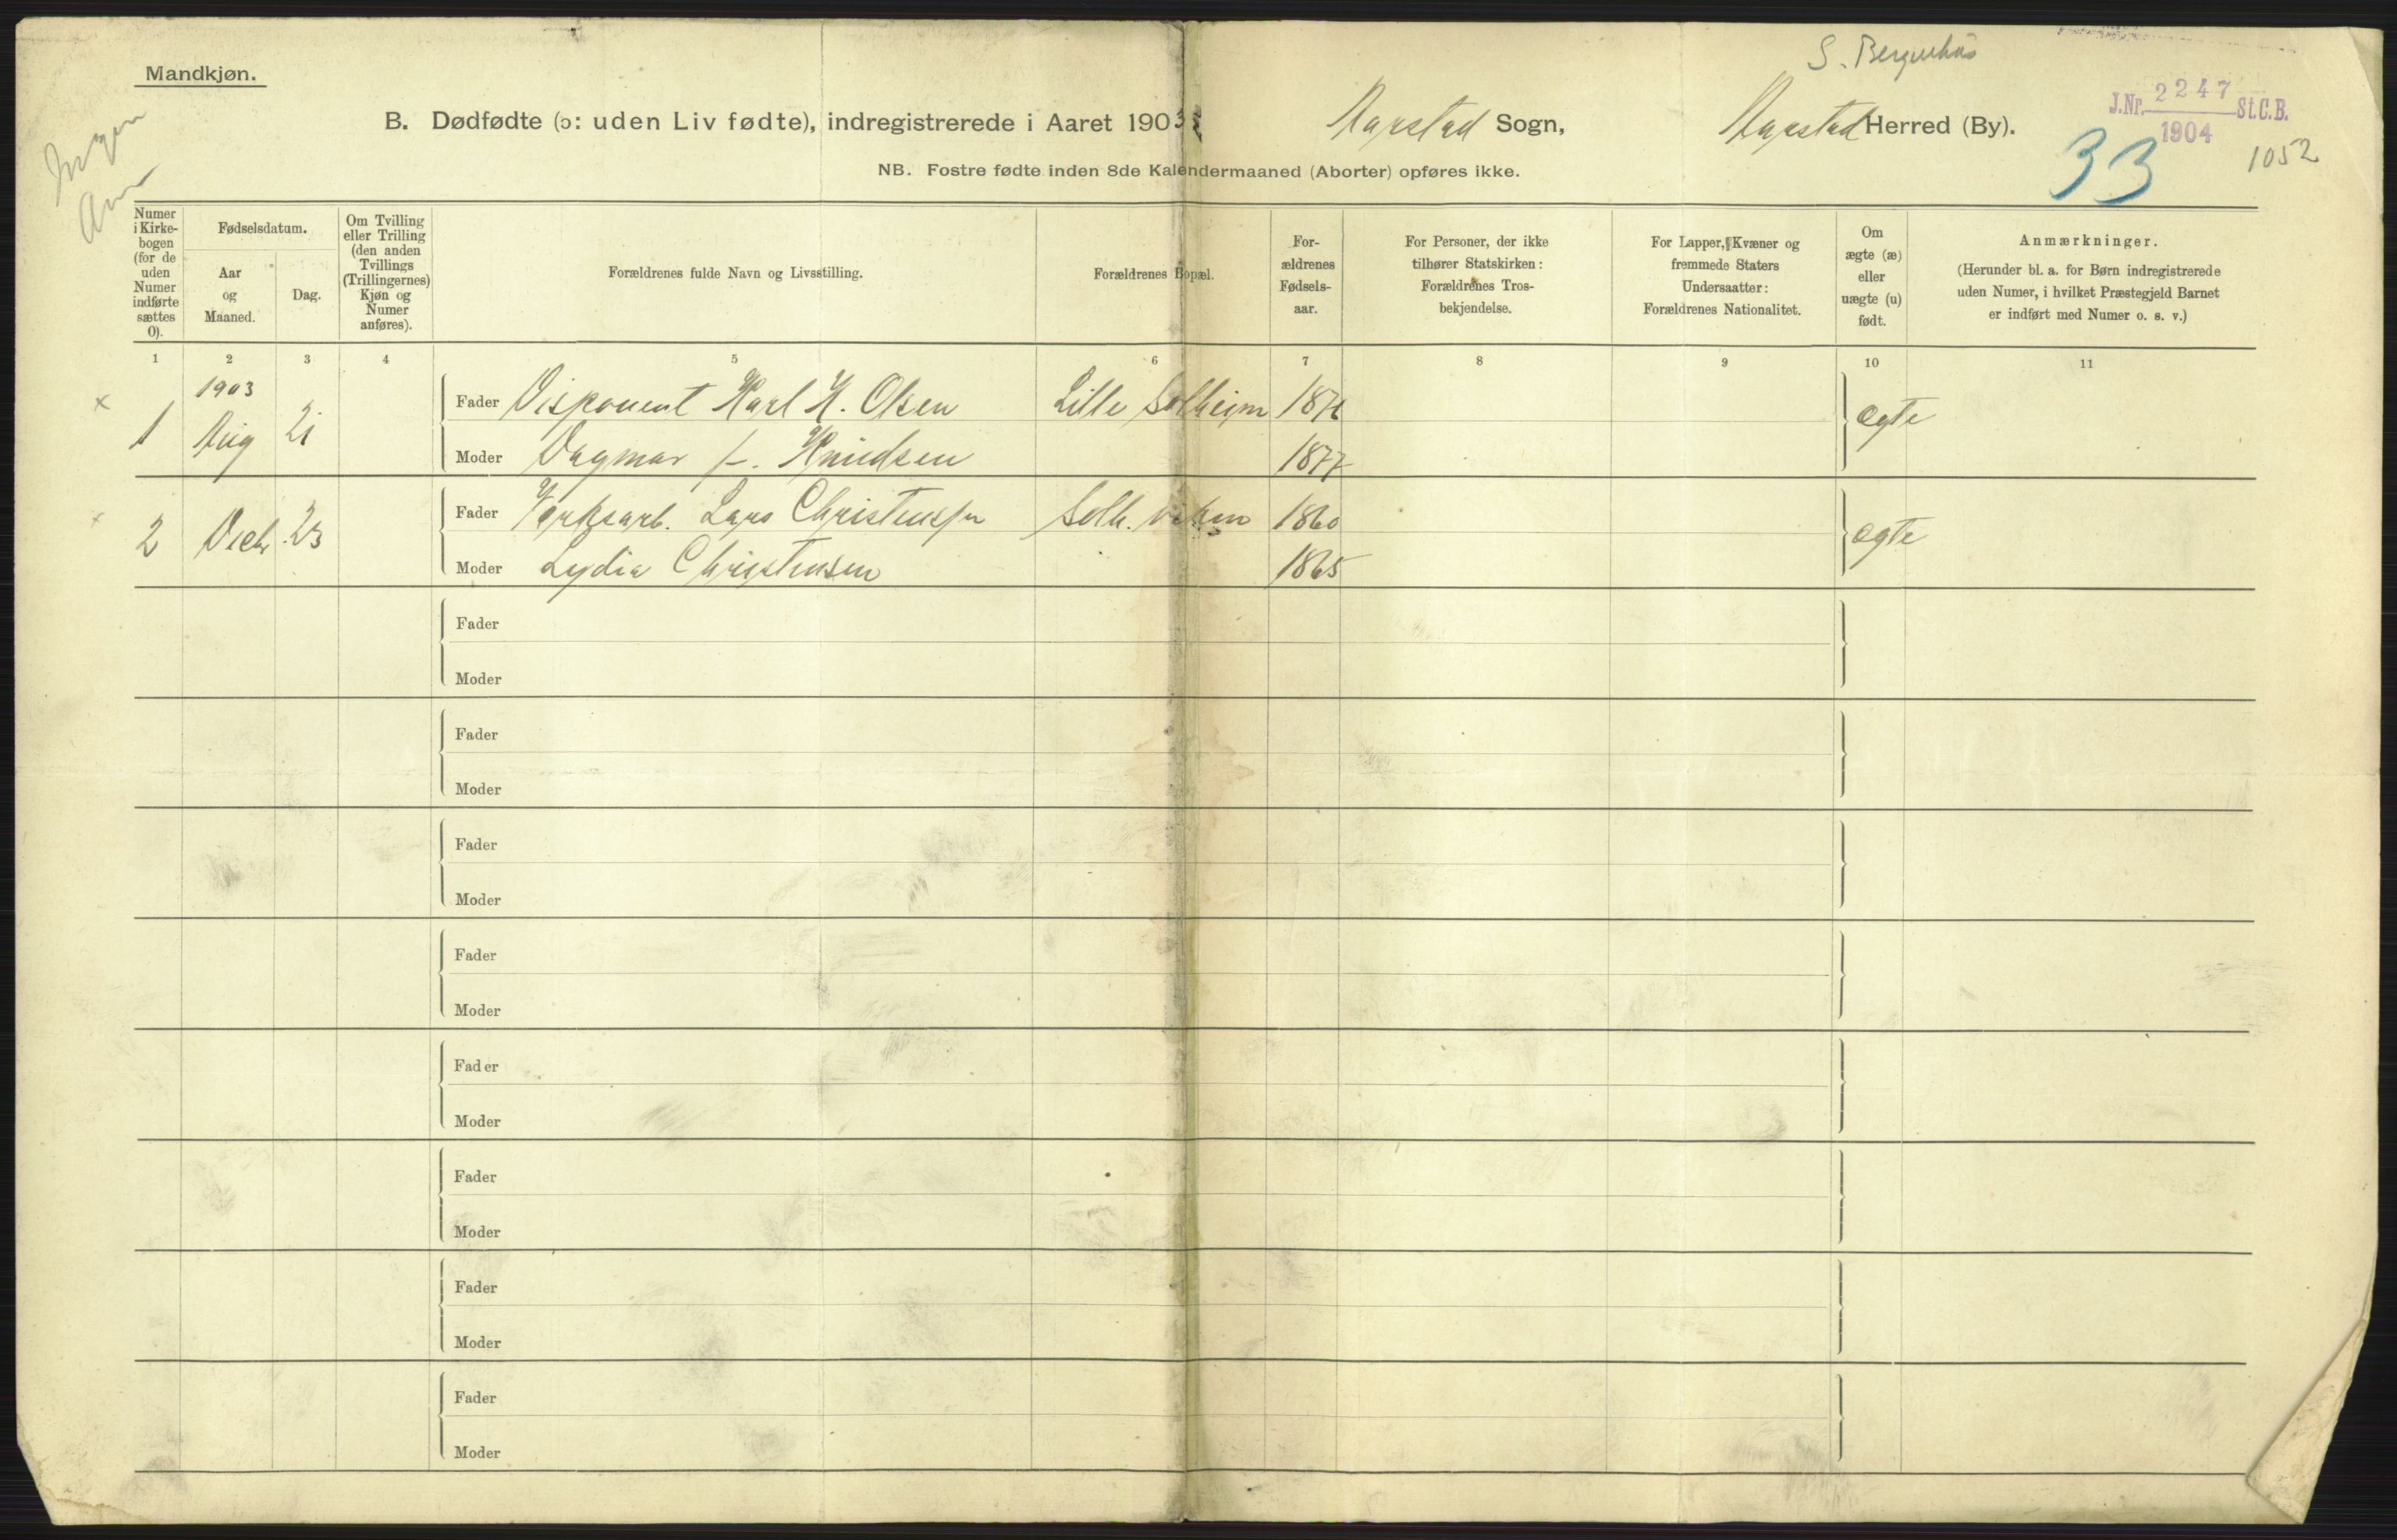 S. Bergenhus
Mandkjøn.
J.Nr. 2247 St.C.B.
1904
B. Dødfødte (ɔ: uden Liv fødte), indregistrerede i Aaret 1903 Aarstad Sogn, Aarstad Herred (By).
33
1052
Ingen
Anm
NB. Fostre fødte inden 8de Kalendermaaned (Aborter) opføres ikke.
Numer i Kirke-bogen (for de uden Numer indførte sættes 0).
Fødselsdatum.
Aar og Maaned.
Dag.
Om Tvilling eller Trilling (den anden Tvillings (Trillingernes) Kjøn og Numer anføres).
Forældrenes fulde Navn og Livsstilling.
Forældrenes Bopæl.
For-ældrenes Fødsels-aar.
For Personer, der ikke tilhører Statskirken: Forældrenes Tros-bekjendelse.
For Lapper, Kvæner og fremmede Staters Undersaatter: Forældrenes Nationalitet.
Om ægte (æ) eller uægte (u) født.
Anmærkninger.
(Herunder bl. a. for Børn indregistrerede uden Numer, i hvilket Præstegjeld Barnet er indført med Numer o. s. v.)
1 2 3 4 5 6 7 8 9 10 11
1903
x 1 Aug 21 Fader Disponent Karl K. Olsen Lille Solheim 187 ægte
Moder Dagmar f. Knudsen 1877
x 2 Decbr. 23 Fader Værksarb. Lars Christensen Solh. viken 1860 ægte
Moder Lydia Christensen 1865
Fader
Moder
Fader
Moder
Fader
Moder
Fader
Moder
Fader
Moder
Fader
Moder
Fader
Moder
Fader
Moder